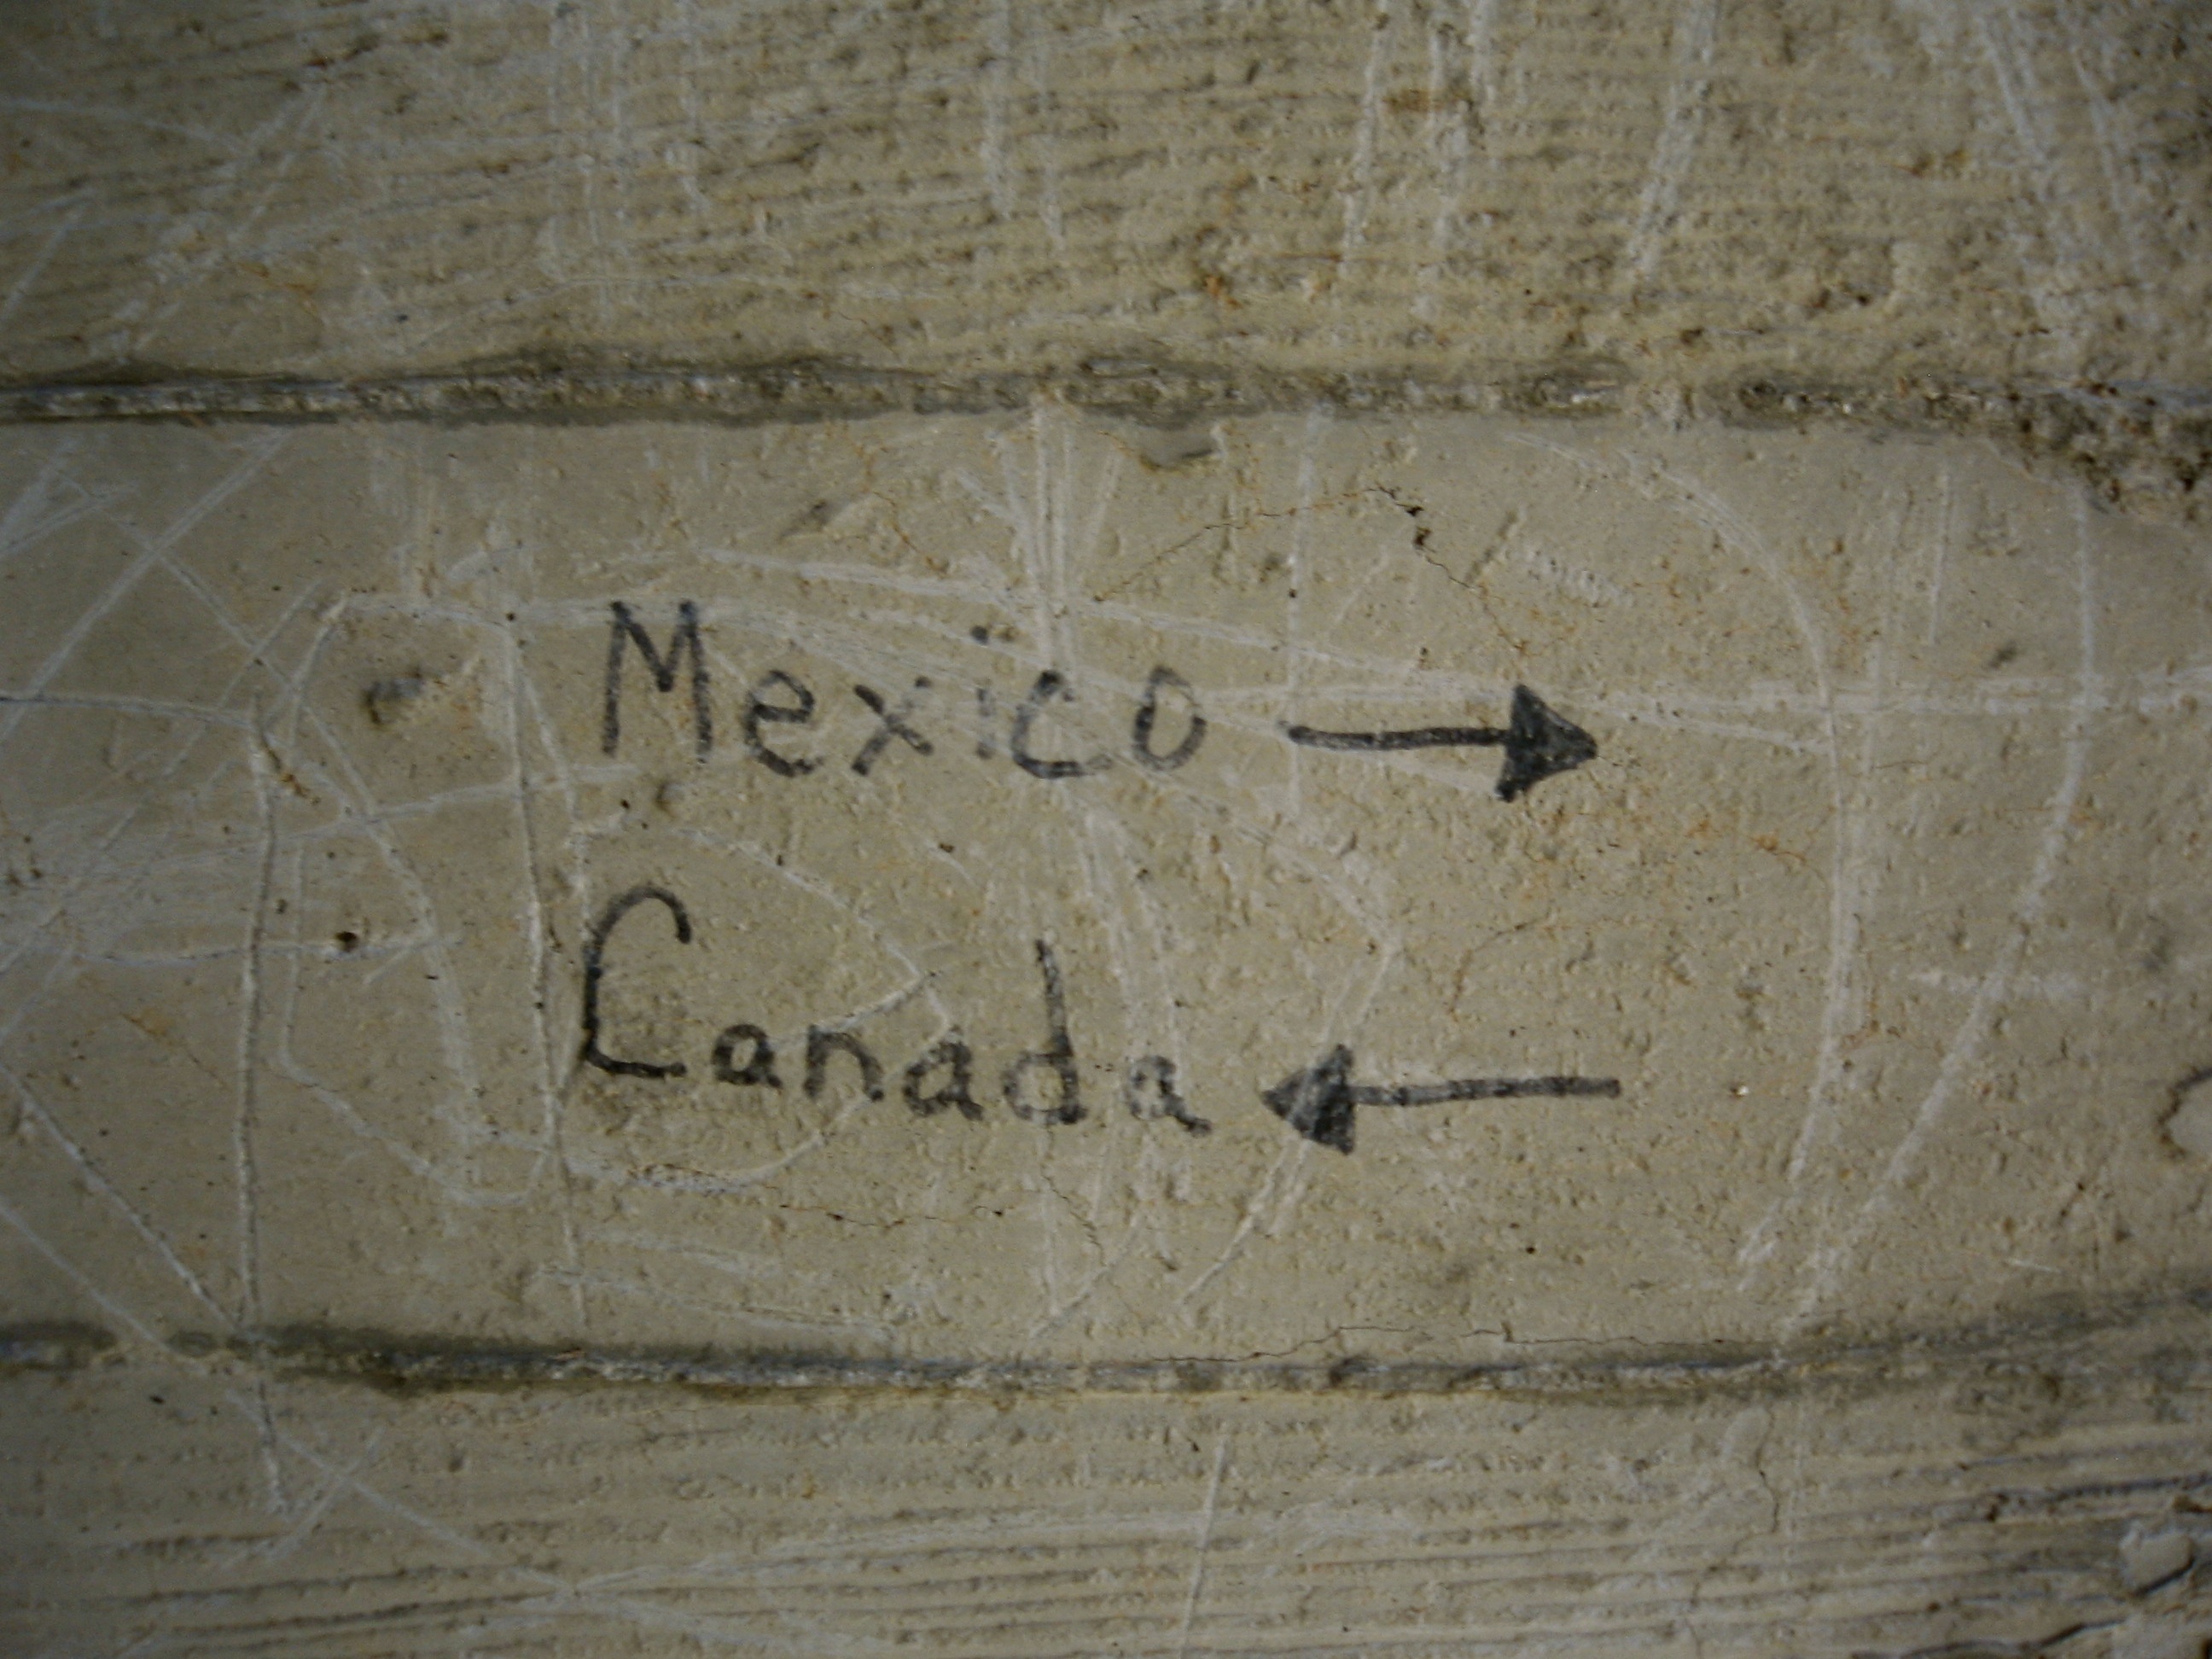 Mexico →
Canada ←